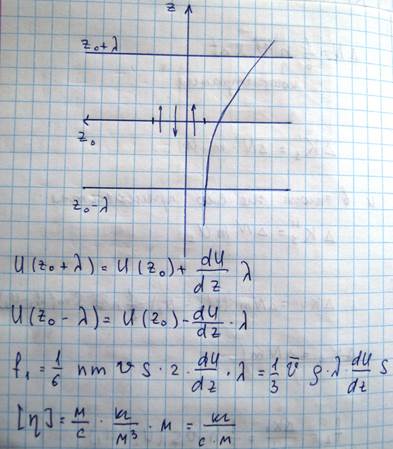 z
z₀+λ
z₀
z₀-λ
U(z₀+λ)=U(z₀)+dU/dz λ
U(z₀-λ)=U(z₀)-dU/dz·λ
f₁=1/6 nmvS·2·dU/dz·λ=1/3 v̄ρ·λ dU/dz S
[η]=м/с·кг/м³·м=кг/с·м